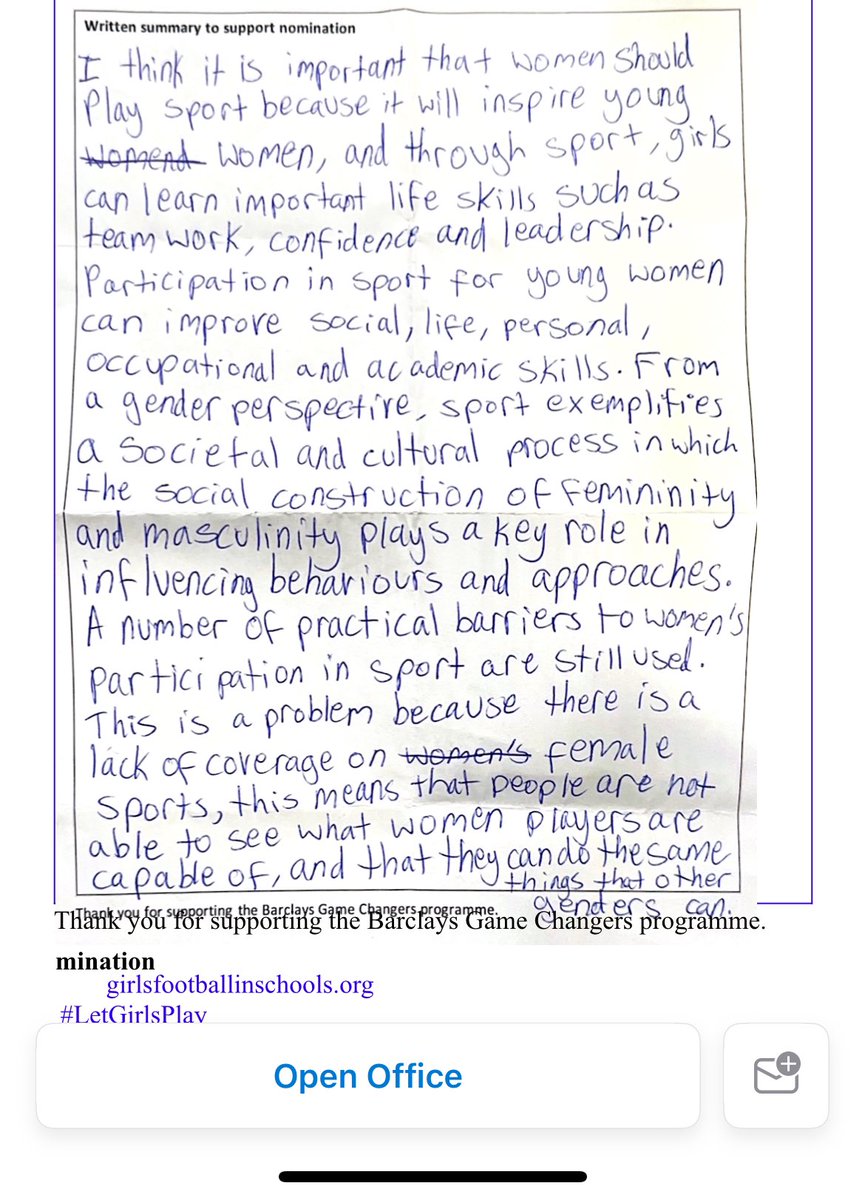 Written summary to support nomination
I think it is important that women should
Play sport because it will inspire young
womend women, and through sport, girls
can learn important life skills such as
team work, confidence and leadership.
Participation in sport for young women
can improve social, life, personal,
occupational and academic skills. From
a gender perspective, sport exemplifies
a societal and cultural process in which
the social construction of femininity
and masculinity plays a key role in
influencing behaviours and approaches.
A number of practical barriers to women's
participation in sport are still used.
This is a problem because there is a
lack of coverage on women's female
sports, this means that people are not
able to see what women players are
capable of, and that they can do the same
things that other
genders can.
Thank you for supporting the Barclays Game Changers programme.
Thank you for supporting the Barclays Game Changers programme.
mination
girlsfootballinschools.org
#LetGirlsPlay
Open Office